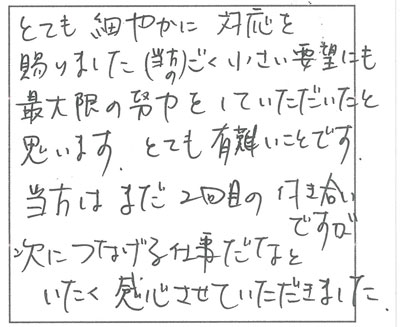 とても 細やかに 対応を
賜りました (当方の)ごく小さい要望にも
最大限の努力をしていただいたと
思います. とても有難いことです.
当方は まだ 2回目の 付き合い
ですが
次につなげる仕事だなと
いたく 感心させていただきました.